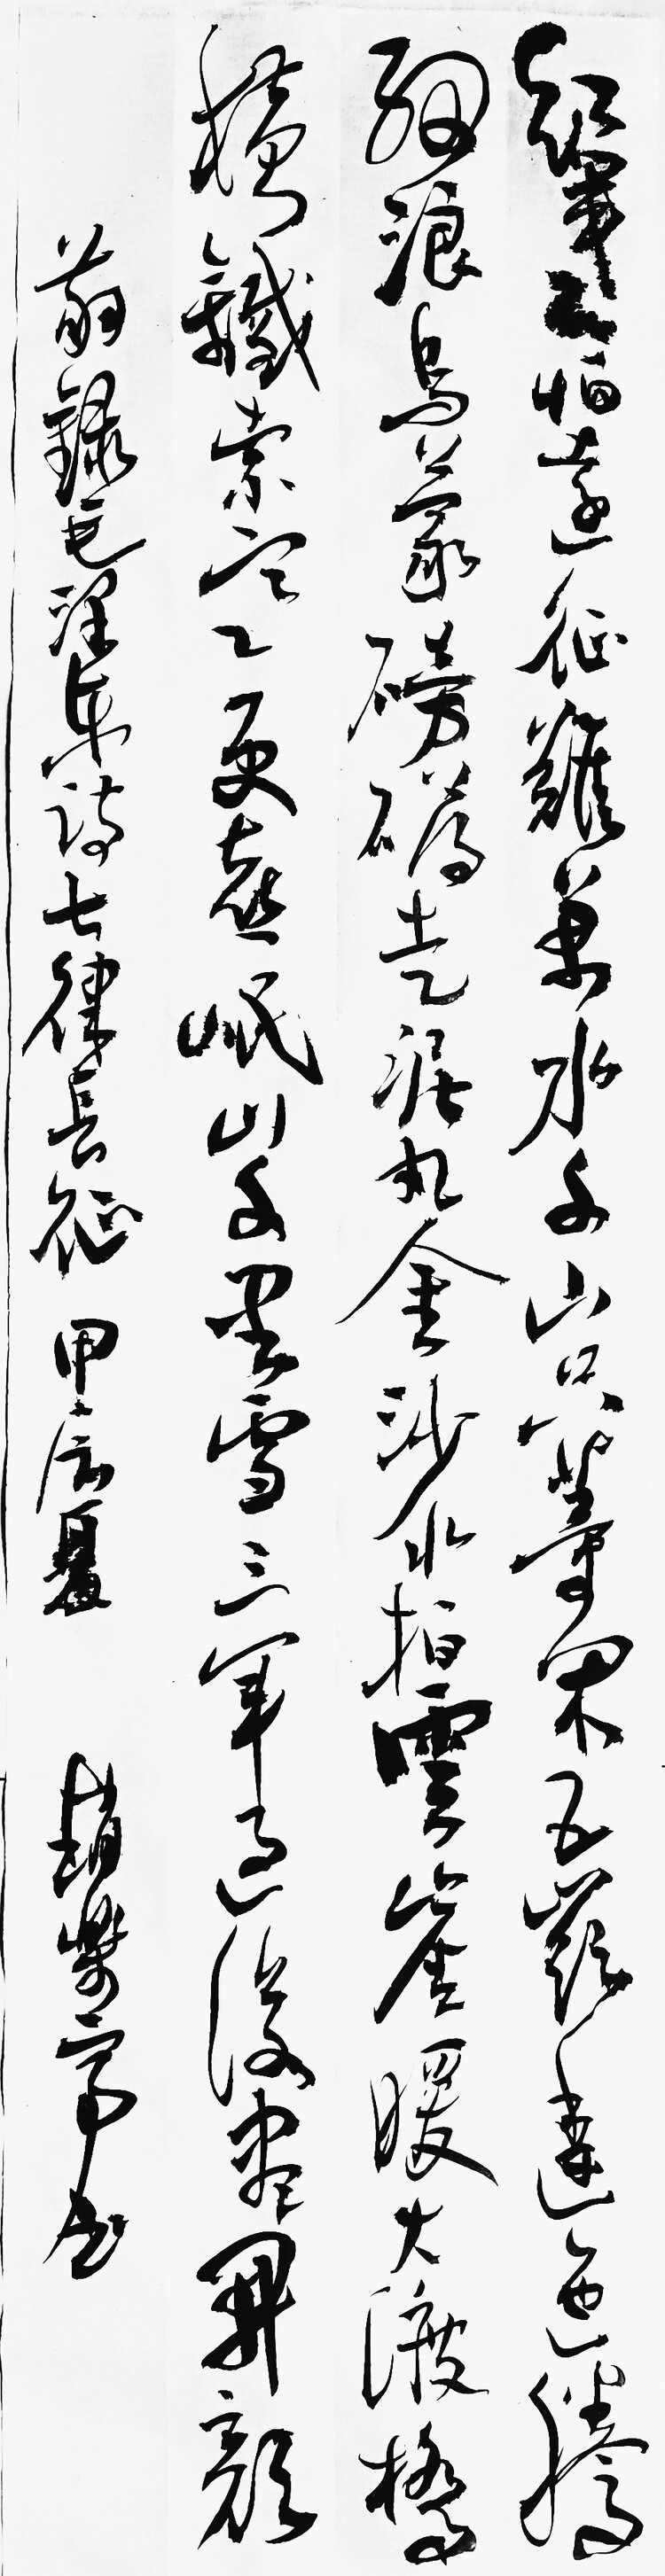 紅軍不怕遠征難萬水千山只等閑五嶺逶迤騰
細浪烏蒙磅礴走泥丸金沙水拍雲崖暖大渡橋
橫鐵索寒更喜岷山千里雪三軍過後盡開顏
敬錄毛澤東詩七律長征 甲辰夏 趙樂寧書